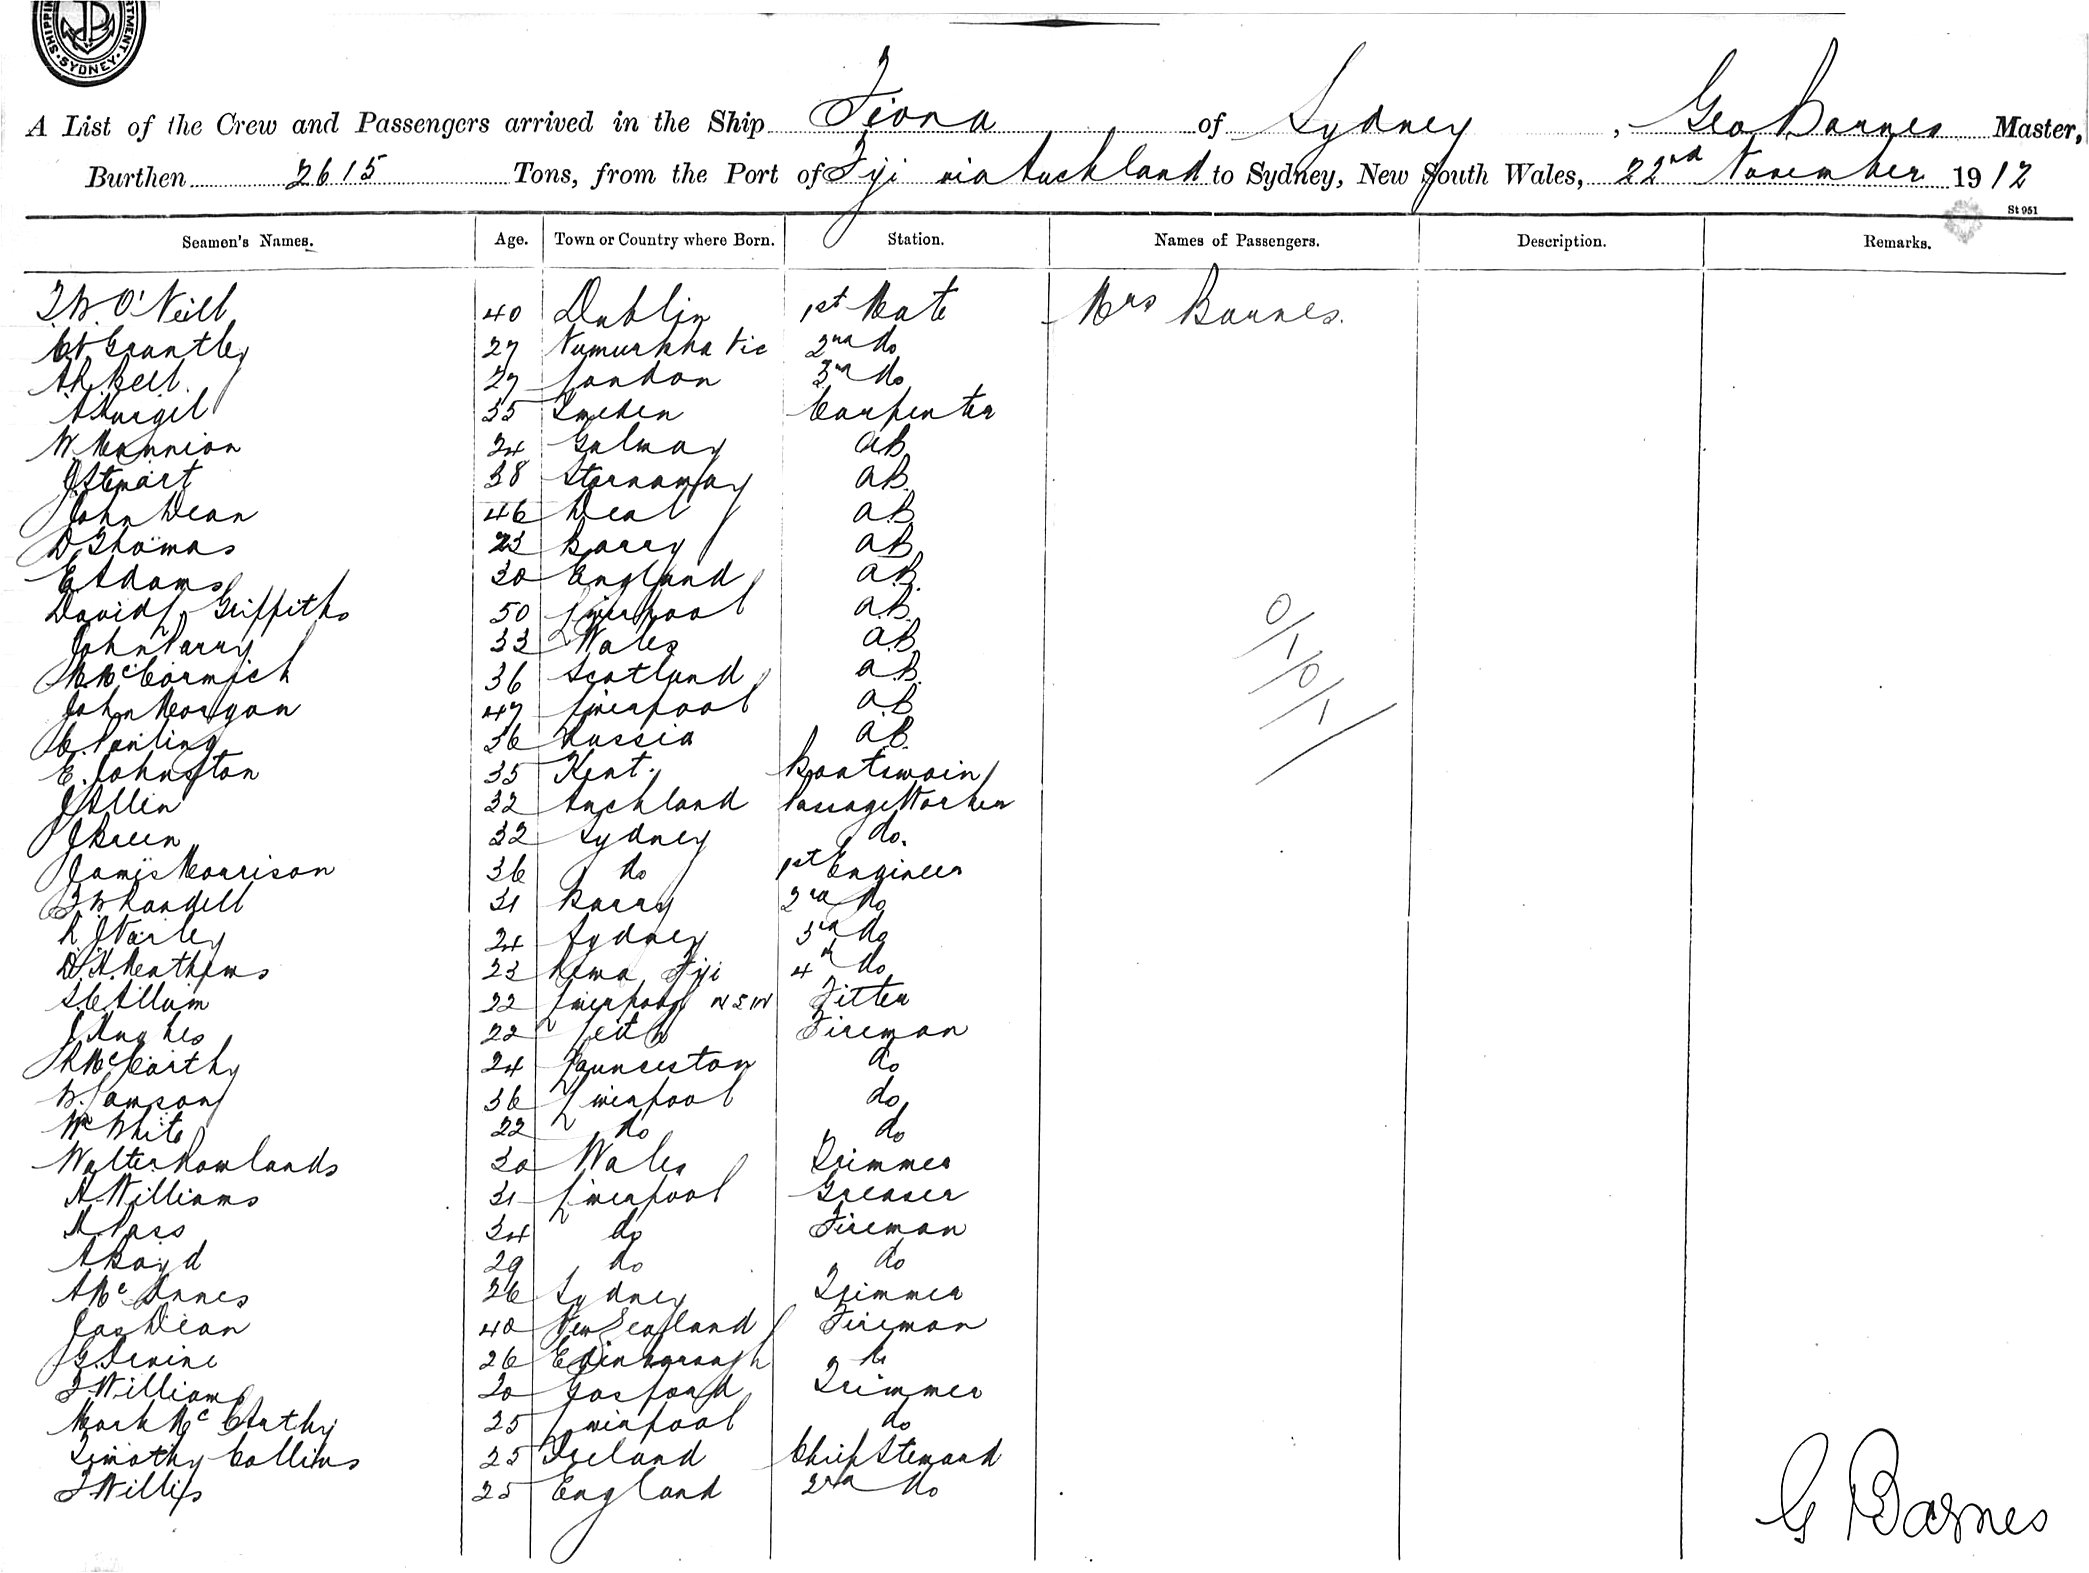 SHIPPING DEPARTMENT SYDNEY
A List of the Crew and Passengers arrived in the Ship Fiona of Sydney, Geo Barnes Master,
Burthen 2615 Tons, from the Port of Fiji via Auckland to Sydney, New South Wales, 22nd November 1912
St 951
Seamen's Names. Age. Town or Country where Born. Station. Names of Passengers. Description. Remarks.
T.W. O'Neill 40 Dublin 1st Mate Mrs Barnes.
Grantley 27 Numurkha Vic 2nd do
A.R. Bell. 27 London 3rd do
35 Sweden Carpenter
W. Mannion 24 Galway AB
J Stewart 38 Stornaway AB
John Dean 46 Deal AB
D Thomas 23 Barry AB
E Adams 30 England AB
David L Griffiths 50 Liverpool AB
John Parry 33 Wales AB
McCormick 36 Scotland AB
John Morgan 47 Liverpool AB
36 Russia AB
E. Johnston 35 Kent. Boatswain
J Allen 32 Auckland Passage Worker
J Breen 32 Sydney do.
James Morrison 36 do 1st Engineer
Randell 31 Barry 2nd do
R J Varley 24 Sydney 3rd do
D. H. Mathews 23 Rewa Fiji 4th do
Allum 22 Liverpool NSW Fitter
J Hughes 22 Leith Fireman
McCarthy 24 Launceston do
W. Lawson 36 Liverpool do
Wm White 22 do do
Walter Rowlands 30 Wales Trimmer
A Williams 31 Liverpool Greaser
H. Pass 34 do Fireman
A Boyd 29 do do
A McInnes 26 Sydney Trimmer
Jas Dean 40 New Zealand Fireman
G. Irvine 26 Edinborough do
T Williams 20 Gosford Trimmer
Mark McCarthy 25 Liverpool do
Timothy Collins 25 Ireland Chief Steward
T Willis 25 England 2nd do
G Barnes